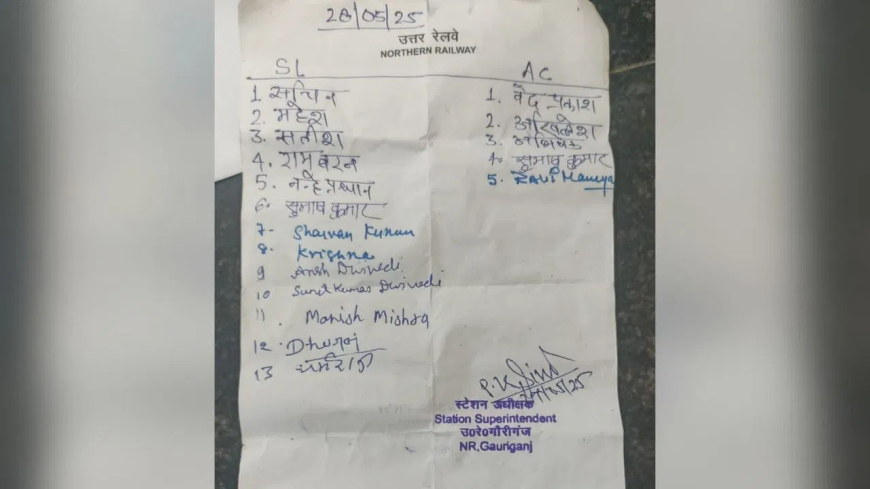 28/05/25
उत्तर रेलवे
NORTHERN RAILWAY
SL
1 सचिन
2. महेश
3. सतीश
4. रामबरन
5. नन्हे प्रधान
6. सुभाष कुमार
7- Sharvan Kumar
8. Krishna
9 Ansh Dwivedi
10 Sunil Kumar Dwivedi
11 . Manish Mishra
12.
13 धर्मराज
AC
1. वेद प्रकाश
2. अखिलेश
3. अभिषेक
4. सुभाष कुमार
5. Ravi Maurya
स्टेशन अधीक्षक
Station Superintendent
उ०रे०गौरीगंज
NR,Gauriganj